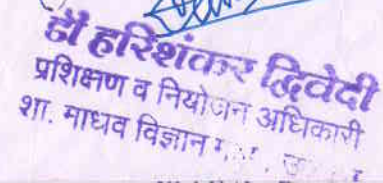 डॉ हरिशंकर द्विवेदी
प्रशिक्षण व नियोजन अधिकारी
शा. माधव विज्ञान